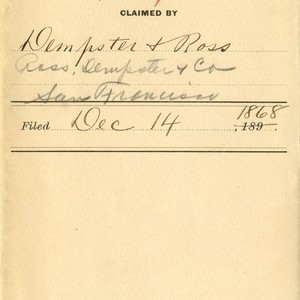 CLAIMED BY
Dempster & Ross
Ross, Dempster & Co
San Francisco
1868
Filed Dec 14 , 189